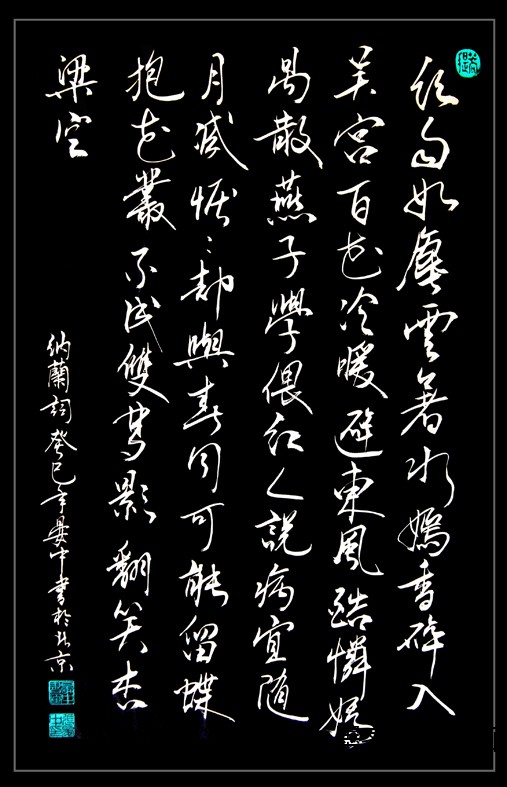 絲雨如塵雲著水嫣香碎入
吳宮百花冷暖避東風酷憐嬌
易散燕子學偎紅人說病宜隨
月減懨懨卻與春同可能留蝶
抱花叢不成雙夢影翻笑杏
梁空
納蘭詞癸巳年晏中書於北京